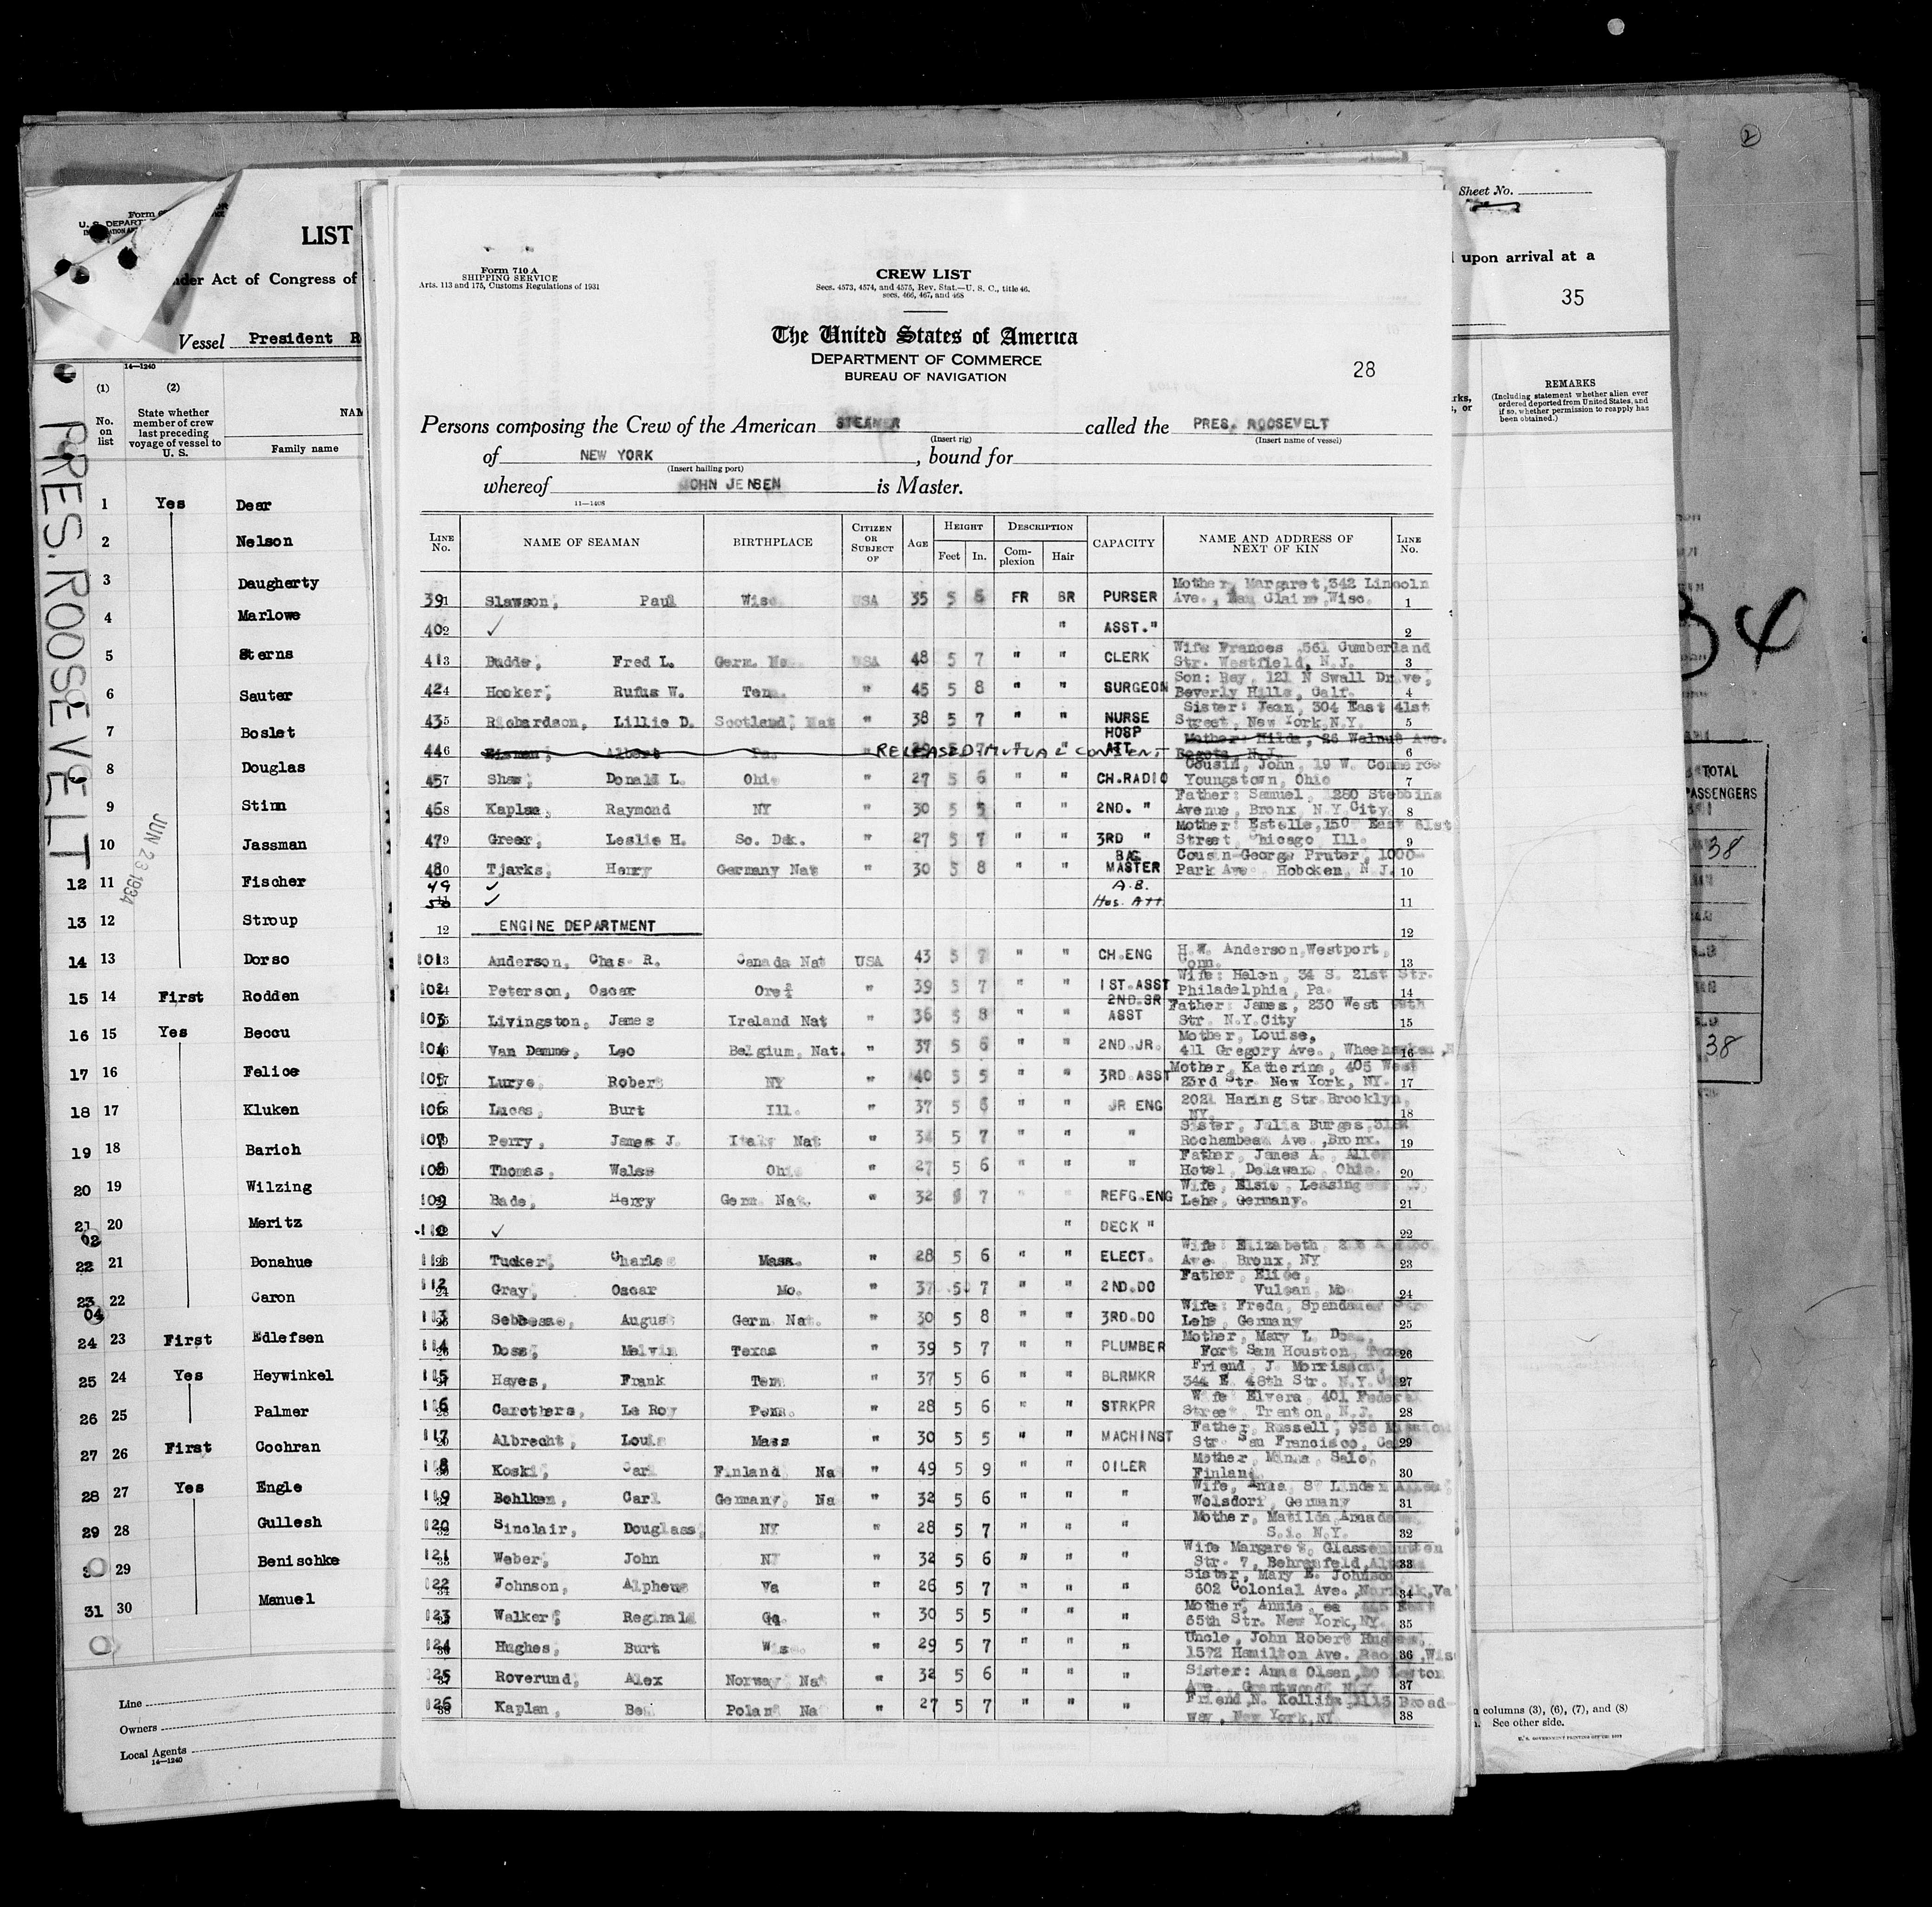 2
Sheet No.
upon arrival at a
35
Form
U. S. DEPART
LIST
nder Act of Congress of
Vessel President R
14—1240
(1)
(2)
No. on list
State whether member of crew last preceding voyage of vessel to U. S.
NAM
Family name
PRES. ROOSEVELT
JUN 23 1934
1 Yes Dear
2 Nelson
3 Daugherty
4 Marlowe
5 Sterns
6 Sauter
7 Boslet
8 Douglas
9 Stinn
10 Jassman
12 11 Fischer
13 12 Stroup
14 13 Dorso
15 14 First Rodden
16 15 Yes Beccu
17 16 Felice
18 17 Kluken
19 18 Barich
20 19 Wilzing
21 20 Meritz
02
22 21 Donahue
23 22 Caron
04
24 23 First Edlefsen
25 24 Yes Heywinkel
26 25 Palmer
27 26 First Cochran
28 27 Yes Engle
29 28 Gullesh
29 Benischke
31 30 Manuel
Line
Owners
Local Agents
14—1240
Form 710 A
SHIPPING SERVICE
Arts. 113 and 175, Customs Regulations of 1931
CREW LIST
Secs. 4573, 4574, and 4575, Rev. Stat.—U. S. C., title 46.
secs. 466, 467, and 468
The United States of America
DEPARTMENT OF COMMERCE
BUREAU OF NAVIGATION
28
Persons composing the Crew of the American STEAMER called the PRES. ROOSEVELT
(Insert rig) (Insert name of vessel)
of NEW YORK, bound for
(Insert hailing port)
whereof JOHN JENSEN is Master.
11—1408
LINE No. NAME OF SEAMAN BIRTHPLACE CITIZEN OR SUBJECT OF AGE HEIGHT Feet In. DESCRIPTION Complexion Hair CAPACITY NAME AND ADDRESS OF NEXT OF KIN LINE No.
Mother, Margaret, 342 Lincoln
39 1 Slawson, Paul Wisc USA 35 5 6 FR BR PURSER Ave., Claire, Wisc. 1
40 2 ✓ " ASST. " 2
Wife Frances 561 Cumberland
41 3 Budde, Fred L. Germ. USA 48 5 7 " " CLERK Str. Westfield, N.J. 3
Son: Ray, 121 N Swall Drive,
42 4 Hooker, Rufus W. Ten. " 45 5 8 " " SURGEON Beverly Hills, Calf. 4
Sister: Jean, 304 East 41st
43 5 Richardson, Lillie D. Scotland, Nat " 38 5 7 " " NURSE Street, New York, N.Y. 5
HOSP Mother: Hilda, 26 Walnut Ave.
44 6 Eisman, Albert Pa. RELEASED MUTUAL CONSENT ATT Bogota, N.J. 6
Cousin, John, 19 W. Commerce
45 7 Shaw, Donald L. Ohio " 27 5 6 " " CH.RADIO Youngstown, Ohio 7
Father: Samuel, 1280 Stebbins
46 8 Kaplan, Raymond NY " 30 5 " " 2ND. " Avenue, Bronx, N.Y.City 8
Mother: Estelle, East 61st
47 9 Greer, Leslie H. So. Dak. " 27 5 7 " " 3RD " Street, Chicago, Ill. 9
BAG Cousin George Pruter, 1000
48 10 Tjarks, Henry Germany Nat " 30 5 8 " " MASTER Park Ave. Hoboken, N.J. 10
49 ✓ A.B.
50 11 ✓ Hos. Att 11
12 ENGINE DEPARTMENT 12
101 13 Anderson, Chas. R. Canada Nat USA 43 5 7 " " CH.ENG H.W. Anderson, Westport, Conn. 13
Wife: Helen, 34 S. 21st Str.
102 14 Peterson, Oscar Ore " 39 5 7 " " 1ST.ASST Philadelphia, Pa. 14
2ND.SR Father: James, 230 West
103 15 Livingston, James Ireland Nat " 36 5 8 " " ASST Str. N.Y.City 15
Mother, Louise,
104 16 Van Damme, Leo Belgium, Nat. " 37 5 6 " " 2ND.JR. 411 Gregory Ave., 16
Mother, Katherine, 405 West
105 17 Lurye, Robert NY " 40 5 5 " " 3RD.ASST 23rd Str. New York, NY. 17
106 18 Lucas, Burt Ill. " 37 5 6 " " JR ENG 2021 Haring Str. Brooklyn, NY. 18
Sister, Julia Burges,
107 19 Perry, James J. Italy Nat " 34 5 7 " " " Rochambeau Ave., Bronx. 19
Father, James A.,
108 20 Thomas, Ohio " 27 5 6 " " " Hotel, Delaware, Ohio. 20
Wife, Elsie,
109 21 Bade, Henry Germ. Nat. " 32 7 " " REFG.ENG Lehe, Germany. 21
110 22 ✓ " DECK " 22
Wife: Elizabeth,
111 23 Tucker, Charles Mass. " 28 5 6 " " ELECT. Ave. Bronx, NY 23
Father,
112 24 Gray, Oscar Mo. " 37 5 7 " " 2ND.DO Vulcan, Mo. 24
Wife: Freda,
113 25 August Germ Nat. " 30 5 8 " " 3RD.DO Lehe, Germany 25
Mother, Mary L.
114 26 Doss, Melvin Texas " 39 5 7 " " PLUMBER Fort Sam Houston, 26
Friend, J. Morrisson,
115 27 Hayes, Frank Tenn " 37 5 6 " " BLRMKR 344 E. 48th Str. N.Y. 27
Wife: Elvera, 401 Federal
116 28 Carothers, Le Roy Penn. " 28 5 6 " " STRKPR Street, Trenton, N.J. 28
Father, Russell, Mission
117 29 Albrecht, Louis Mass " 30 5 5 " " MACHINST Str. San Francisco, 29
Mother, Salo,
118 30 Koski, Carl Finland Na " 49 5 9 " " OILER Finland 30
Wife, Anna,
119 31 Bohlken, Carl Germany, Na " 32 5 6 " " " Germany 31
Mother, Matilda,
120 32 Sinclair, Douglass, NY " 28 5 7 " " " S.I. N.Y. 32
Wife Margaret,
121 33 Weber, John N " 32 5 6 " " " Str. 7, 33
Sister, Mary E. Johnson
122 34 Johnson, Alpheus Va " 26 5 7 " " " 602 Colonial Ave., Norfolk, Va 34
Mother, Annie,
123 35 Walker, Reginald Ga. " 30 5 5 " " " 65th Str. New York, NY. 35
Uncle, John Robert Hughes,
124 36 Hughes, Burt Wis. " 29 5 7 " " " 1572 Hamilton Ave. 36
Sister: Anna Olsen,
125 37 Roverund, Alex Norway Nat " 32 5 6 " " " Ave., Grantwood, N.Y. 37
Friend, N. 1113 Broad-
126 38 Kaplan, Ben Poland Na " 27 5 7 " " " way, New York, NY 38
REMARKS
(Including statement whether alien ever ordered deported from United States, and if so, whether permission to reapply has been obtained.)
34
TOTAL
PASSENGERS
38
38
columns (3), (6), (7), and (8)
See other side.